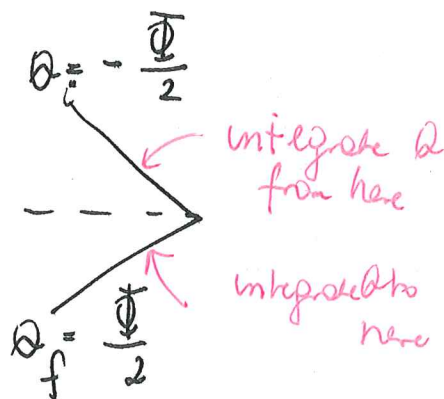 θ_i = - Φ/2
integrate θ
from here
integrate θ to
here
θ_f = Φ/2